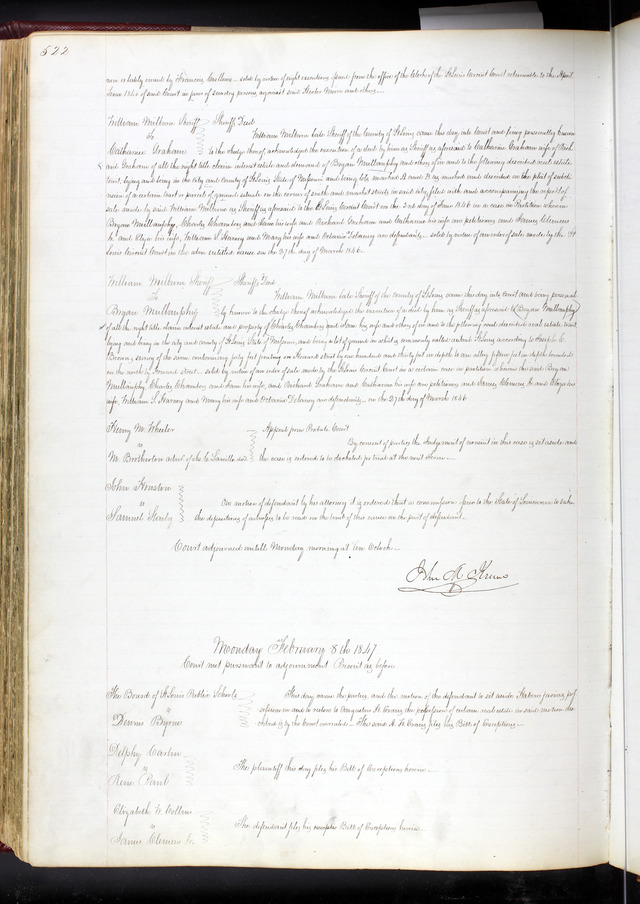 522
sold by virtue of eight executions issued from the office of the Clerk of the St Louis Circuit Court returnable to the April
Term of said Court in favor of sundry persons against said and others
William Milburn Sheriff Sheriffs Deed
to William Milburn late Sheriff of the County of St Louis came this day into Court and being personally known
Catharine Graham to the Judge thereof acknowledged the execution of a deed by him as Sheriff as aforesaid to Catharine Graham wife of Rich
ard Graham of all the right title claim interest estate and demand of Bryan Mullanphy and others of in and to the following described real estate
to wit, lying and being in the city and County of St Louis State of Missouri and being lots marked B and B so marked and described on the plat of subdi
vision of a certain tract or parcel of ground situate on the corner of south and market streets in said city, filed with and accompanying the report of
sale made by said William Milburn as Sheriff as aforesaid to the St Louis Circuit Court on the day of June 1846 in a case in Partition wherein
Bryan Mullanphy, Charles Chambers and Jane his wife and Richard Graham and Catharine his wife are petitioners and James Clemens
Jr and Eliza his wife, William S. Harney and Mary his wife and Octavia Delaney are defendants sold by virtue of an order of sale made by the St
Louis Circuit Court in the above entitled cause on the 27th day of March 1846.
William Milburn Sheriff Sheriffs Deed
To William Milburn late Sheriff of the county of St Louis came this day into Court and being personal
Bryan Mullanphy ly known to the Judge thereof acknowledged the execution of a deed by him as Sheriff as aforesaid to Bryan Mullanphy
of all the right title claim interest estate and property of Charles Chambers and Jane his wife and others of in and to the following real described real estate to wit
lying and being in the city and county of St Louis State of Missouri, and being a lot of ground in what is commonly called North St Louis according to Joseph C.
Brown, survey of the same containing forty feet fronting on Howard street by one hundred and thirty feet in depth to an alley fifteen feet in depth bounded
on the north by Howard street sold by virtue of an order of sale made by the St Louis Circuit Court in a certain case in partition wherein the said Bryan
Mullanphy Charles Chambers and Jane his wife, and Richard Graham and Catharine his wife are petitioners and James Clemens Jr and Eliza his
wife William S. Harney and Mary his wife and Octavia Delaney are defendants on the 27th day of March 1846
Henry M. Wheeler Appeal from Probate Court
vs By consent of parties the Judgment of nonsuit in this case is set aside and
M. Brotherton admr. of the case is ordered to be docketed for trial at the next term
John Houston
vs On motion of defendant by his attorney it is ordered that a commission issue to the State of Tennessee to take
Samuel the depositions of witnesses to be read on the trial of this cause on the part of defendant
Court adjourned untill Monday morning at ten Oclock
John M. Krum
Monday February 8th 1847
Court met pursuant to adjournment Present as before
The Board of St Louis Public Schools This day came the parties, and the motion of the defendant to set aside
vs and to restore to Augustus H. Evans the possession of certain real estate in said motion de
Dennis Byrne scribed is by the Court overruled The said A. H. Evans files his Bill of Exceptions
Delphy Carlin
vs The plaintiff this day files his Bill of Exceptions herein
Rene Paul
Elizabeth W. Collins
vs The defendant files his Bill of Exceptions herein
James Clemens Jr.